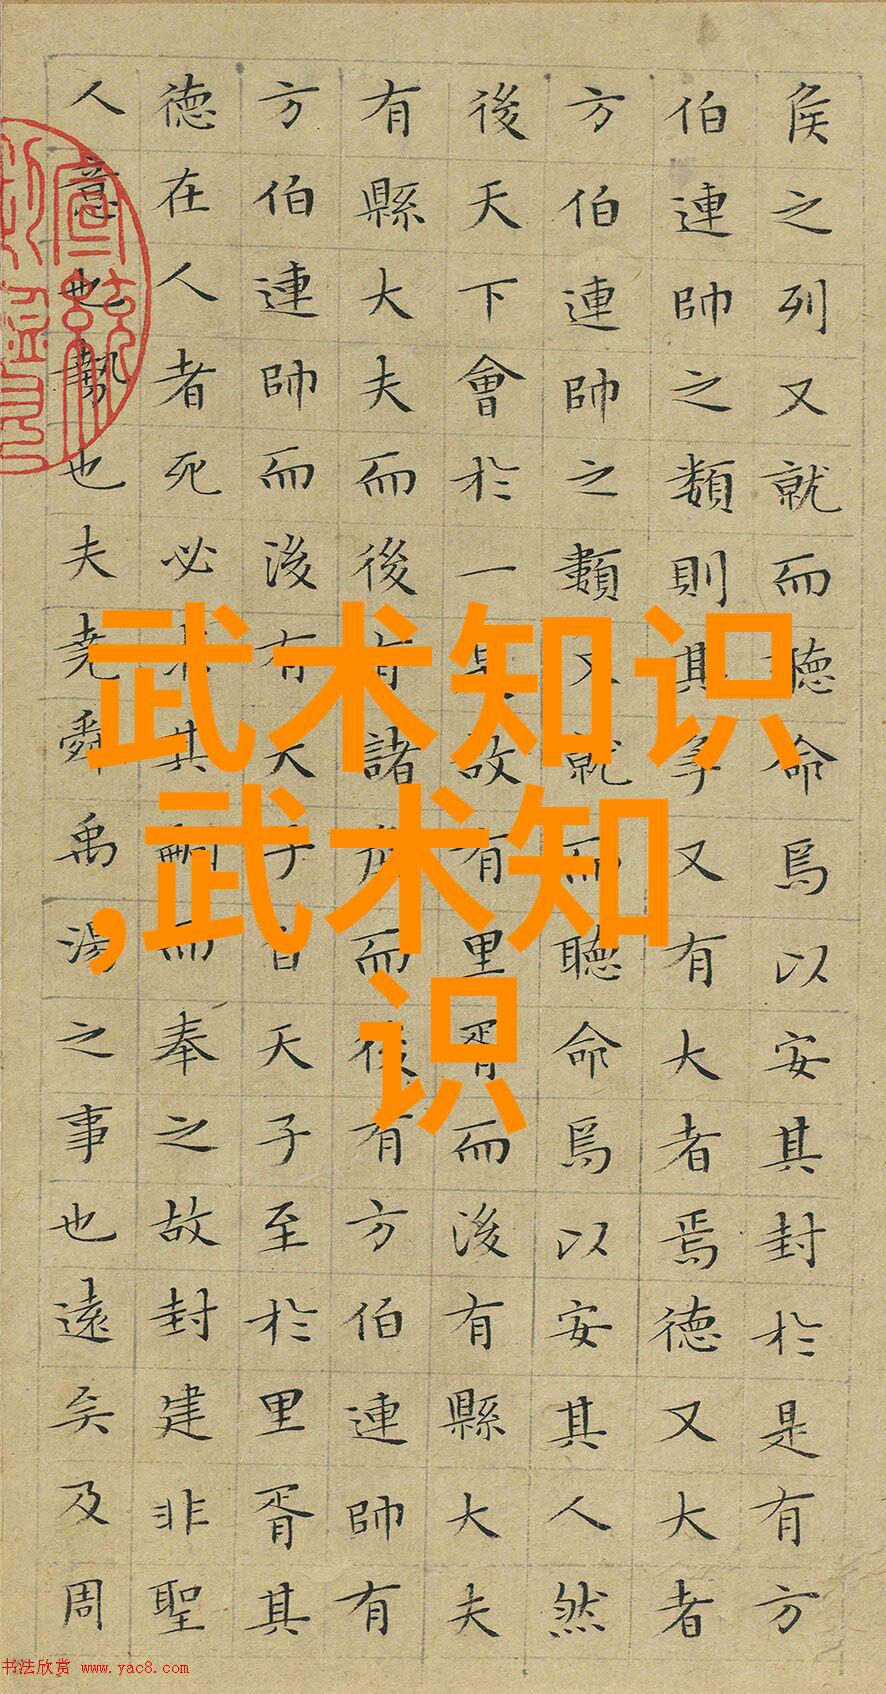 侯之列又就而聴命焉以安其封於是有方
伯連帥之類則其爭又有大者焉徳又大者
方伯連帥之類又就而聴命焉以安其人然
後天下會於一是故有里胥而後有縣大夫
有縣大夫而後有諸侯而後有方伯連帥有
方伯連帥而後有天子自天子至於里胥其
徳在人者死必求其嗣而奉之故封建非聖
人意也勢也夫堯舜禹湯之事也遠矣及周
武术知识
,武术知
识
书法欣赏 www.yac8.com